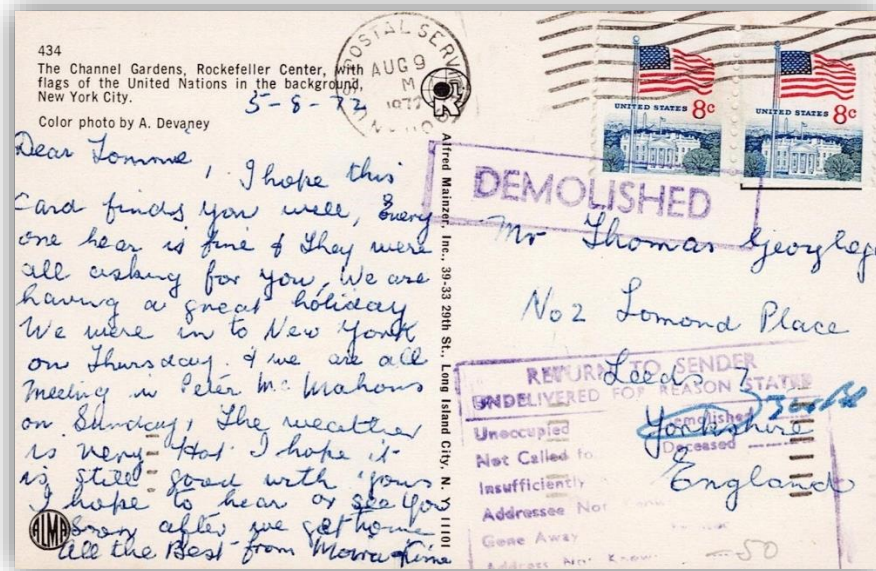 434
The Channel Gardens, Rockefeller Center, with
flags of the United Nations in the background,
New York City.
5-8-72
Color photo by A. Devaney
Dear Tommie,
I hope this
Card finds you well, Every
one hear is fine & They were
all asking for you, We are
having a great holiday
We were in to New York
on Thursday. & we are all
meeting in Peter Mc Mahons
on Sunday, The weather
is very Hot I hope it
is still good with yous
I hope to hear or see you
Soon after we get home
All the Best from
ALMA
POSTAL SERVICE
AUG 9
M
1972
Alfred Mainzer, Inc., 39-33 29th St., Long Island City, N. Y. 11101
UNITED STATES 8c
UNITED STATES 8c
DEMOLISHED
Mr Thomas
No 2 Lomond Place
Leeds 7
Yorkshire
England
RETURN TO SENDER
UNDELIVERED FOR REASON STATED
Unoccupied
Demolished
Not Called for
Deceased
Insufficiently
Addressee Not
Gone Away
Address Not Known
50